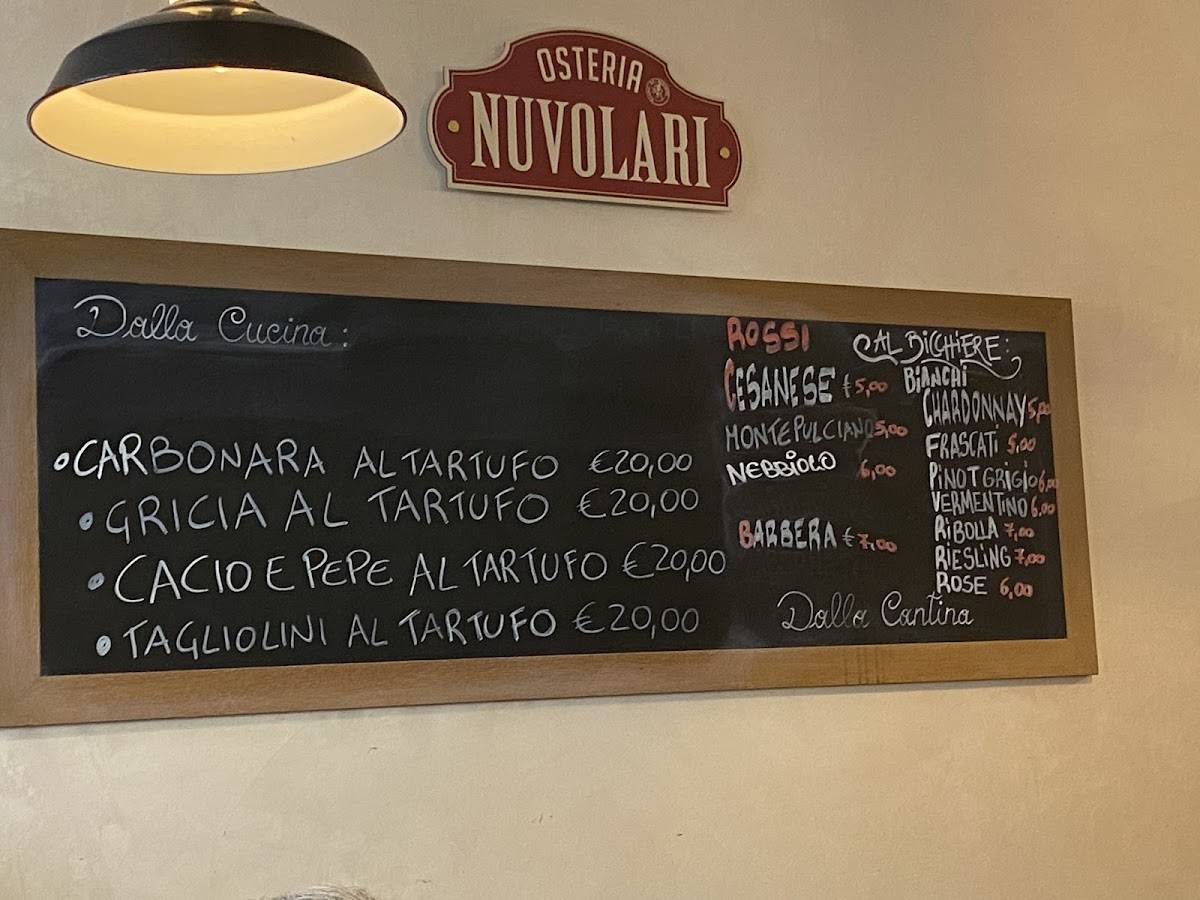 OSTERIA
NUVOLARI
Dalla Cucina:
•CARBONARA AL TARTUFO €20,00
•GRICIA AL TARTUFO €20,00
•CACIO E PEPE AL TARTUFO €20,00
•TAGLIOLINI AL TARTUFO €20,00
ROSSI
CESANESE €5,00
MONTEPULCIANO 5,00
NEBBIOLO 6,00
BARBERA €7,00
AL BICCHIERE:
BIANCHI
CHARDONNAY 5,00
FRASCATI 5,00
PINOT GRIGIO 6,00
VERMENTINO 6,00
RIBOLLA 7,00
RIESLING 7,00
ROSE 6,00
Dalla Cantina